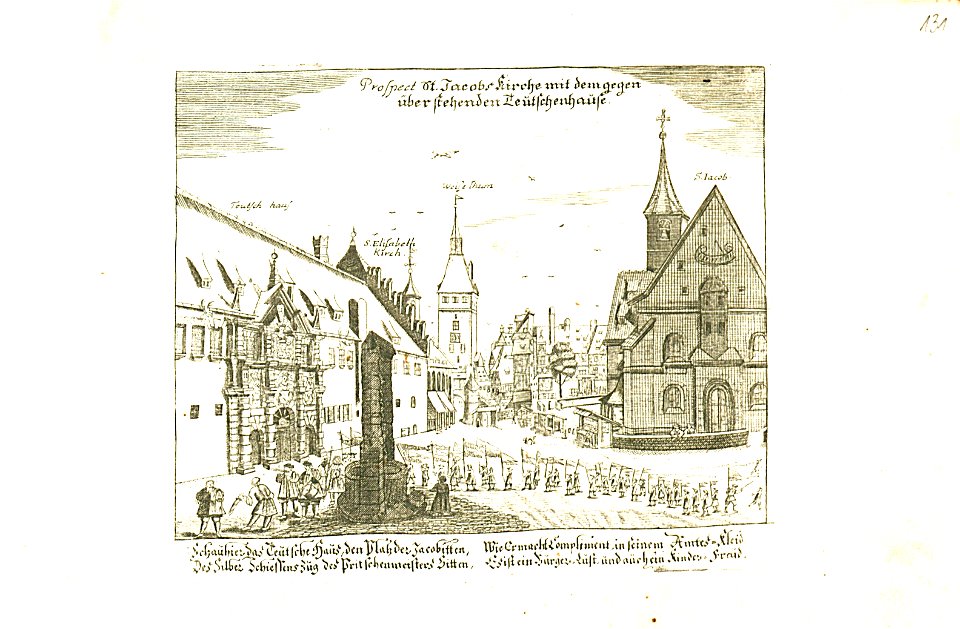 131
Prospect St. Jacobs Kirche mit dem gegen
über stehenden Teütschenhause.
Weise Thurn
S. Iacob
Teutsch haus
S. Elisabeth
Kirch
Schau hier das Teütsche Haus, den Platz der Jacobitten, Wie Er macht Compliment, in seinem Amtes=Kleid
Des Silber Schiessens Zug des Pritschenmeisters Bitten, Es ist ein Bürger=Lust, und auch ein Kinder=Freud.